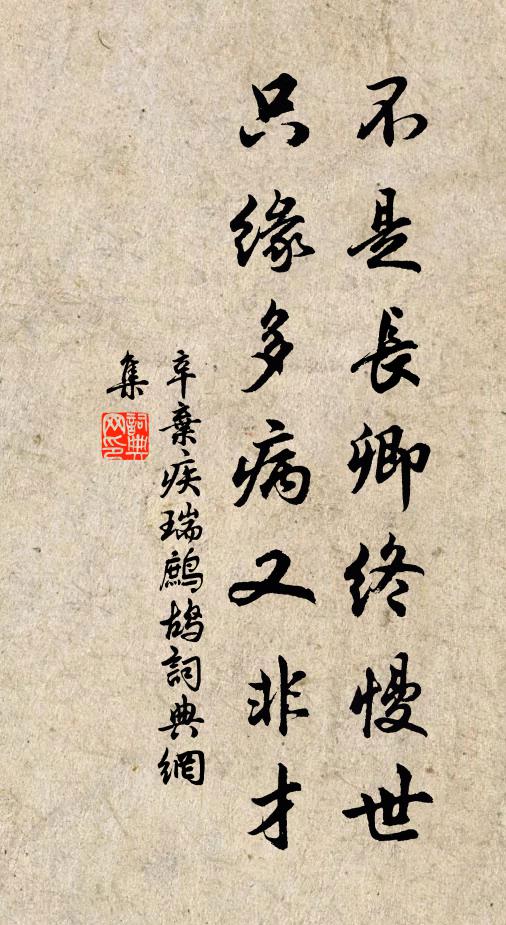 不是長卿終慢世
只緣多病又非才
辛棄疾瑞鷓鴣詞典網
集
詞典
网印